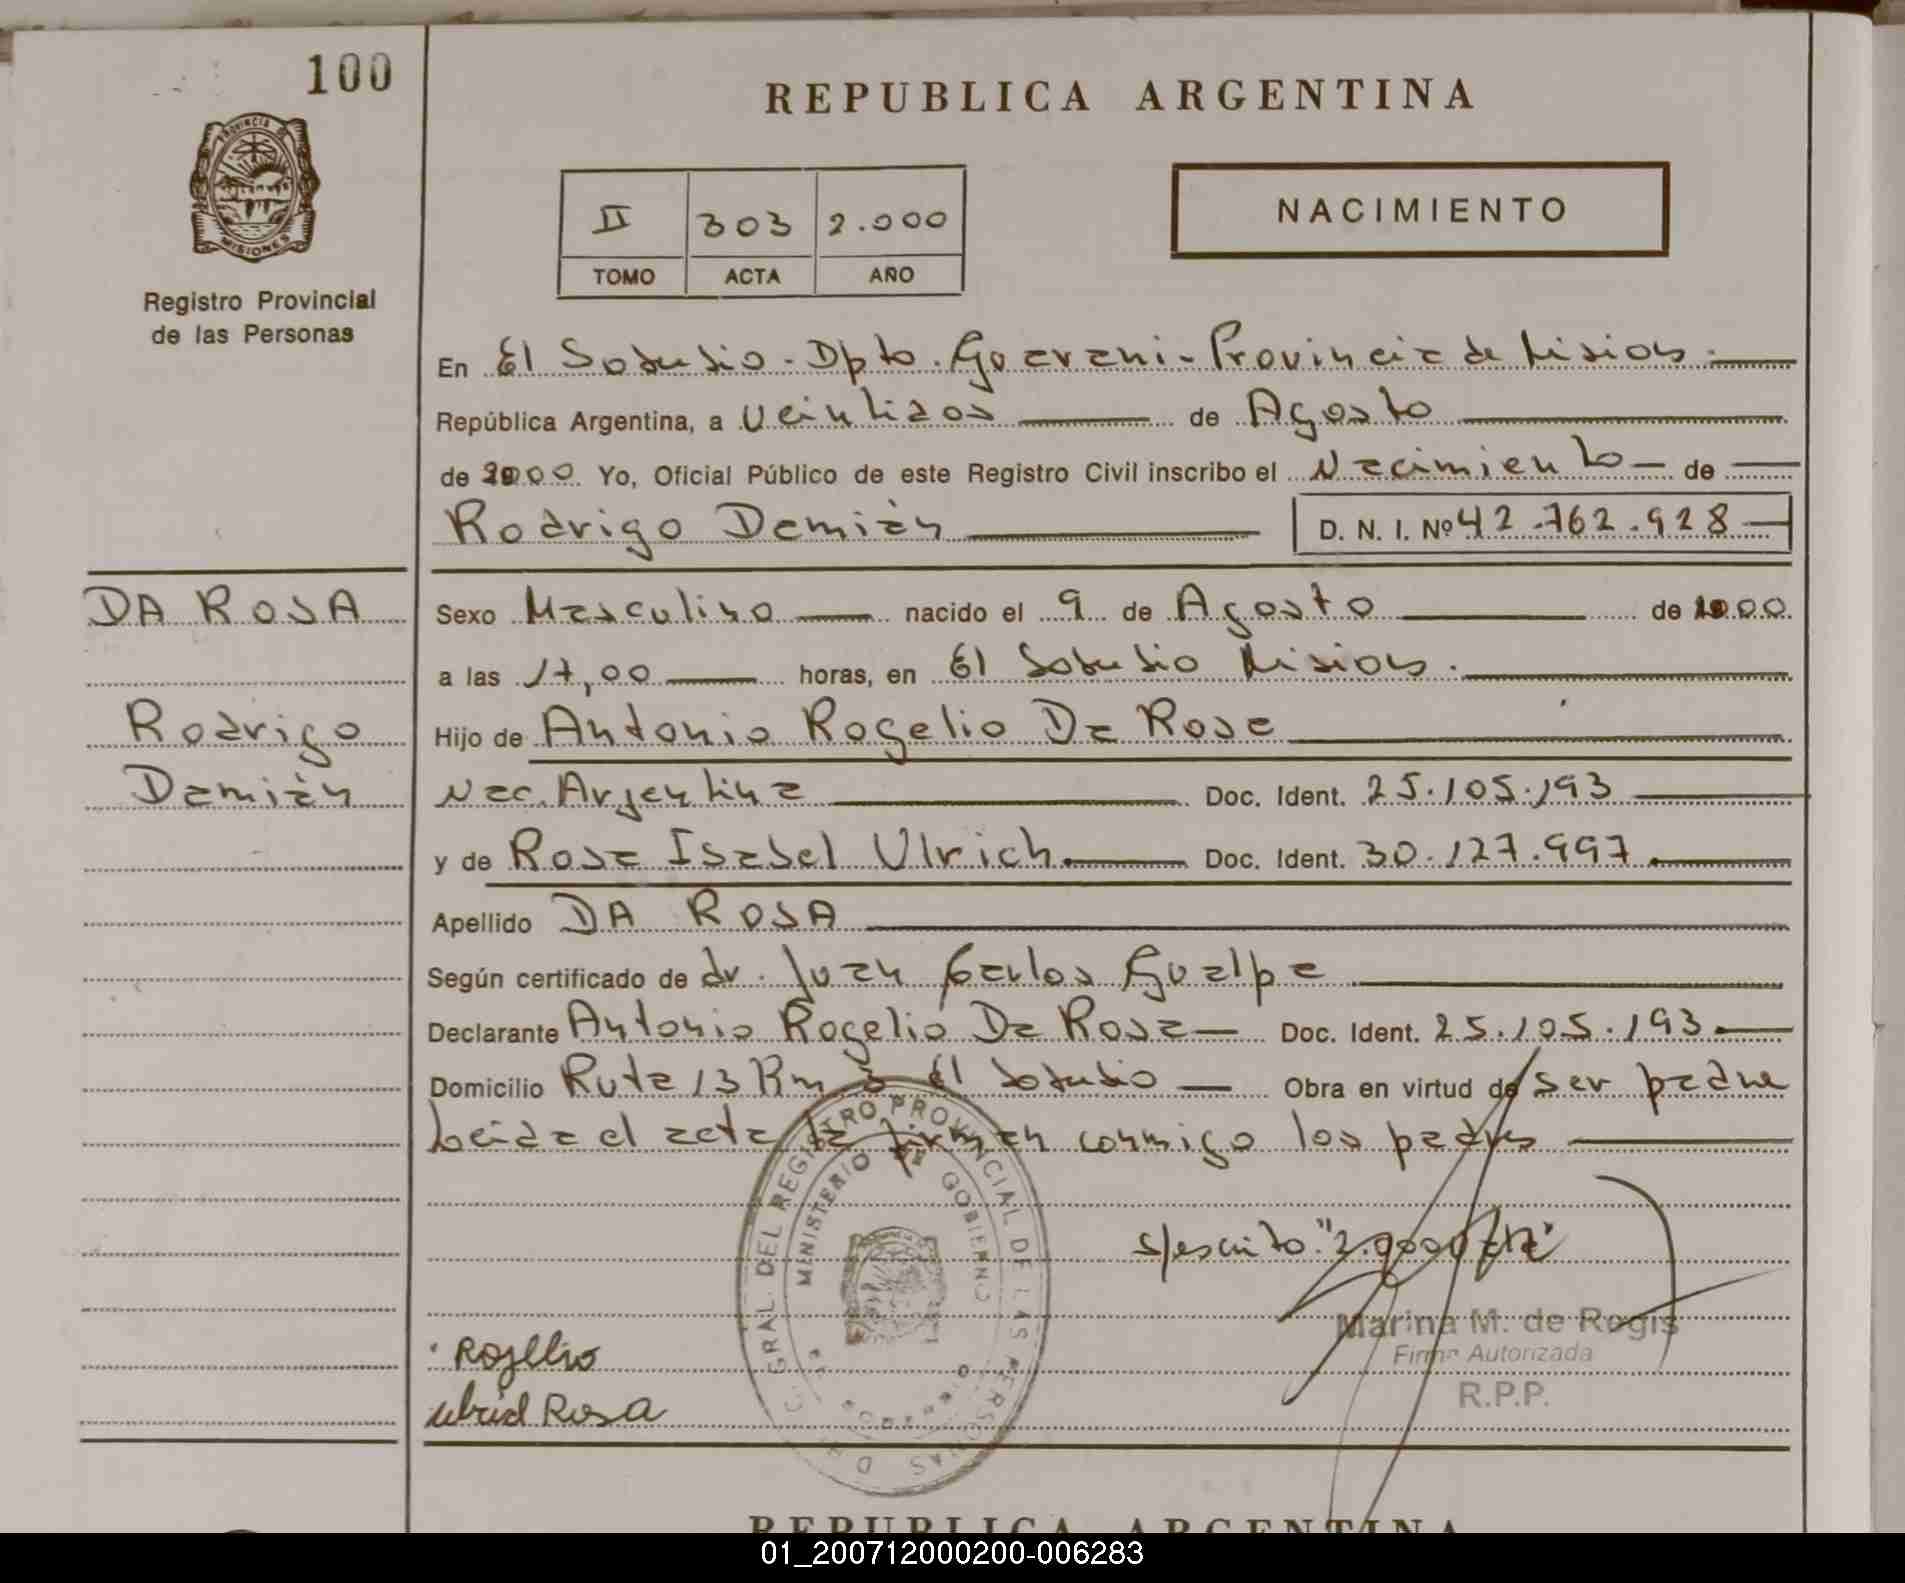 100
REPUBLICA ARGENTINA
PROVINCIA DE
MISIONES
Registro Provincial
de las Personas
II 303 2.000
TOMO ACTA AÑO
NACIMIENTO
En El Soberbio - Dpto. Guarani - Provincia de Misiones.
República Argentina, a veintidos de Agosto
de 2000 Yo, Oficial Público de este Registro Civil inscribo el Nacimiento de
Rodrigo Demián D. N. I. Nº 42.762.928
DA ROSA
Sexo Masculino nacido el 9 de Agosto de 2000
a las 17,00 horas, en El Soberbio Misiones.
Rodrigo
Hijo de Antonio Rogelio Da Rosa
Demián
Nac. Argentina Doc. Ident. 25.105.193
y de Rosa Isabel Ulrich Doc. Ident. 30.127.997
Apellido DA ROSA
Según certificado de dr. Juan Carlos Gualpa
Declarante Antonio Rogelio Da Rosa Doc. Ident. 25.105.193
Domicilio Ruta 13 Km 3 El Soberbio Obra en virtud de ser padre
Leida el acta la firman conmigo los padres
GRAL. DEL REGISTRO PROVINCIAL DE LAS PERSONAS
MINISTERIO DE GOBIERNO
s/escrito "2.000
Marina M. de Regis
Firma Autorizada
R.P.P.
Rojelio
Rosa
REPUBLICA ARGENTINA
01_200712000200-006283